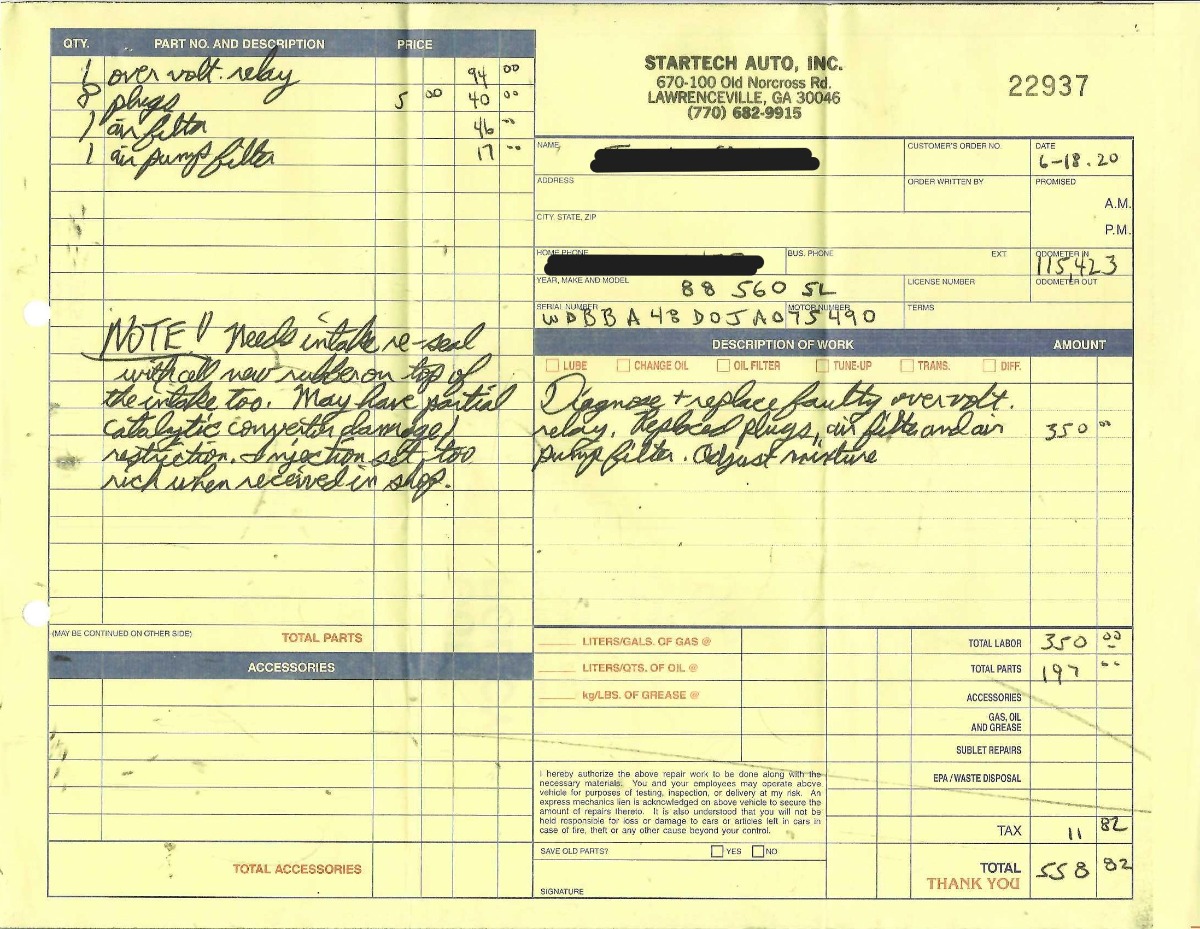 QTY. PART NO. AND DESCRIPTION PRICE
1 over volt. relay 94 00
8 plugs 5 00 40 00
1 air filter 46
1 air pump filter 17
NOTE! Needs intake re-seal
with all new rubber on top of
the intake too. May have partial
catalytic converter damage/
restriction. Injection set too
rich when received in shop.
(MAY BE CONTINUED ON OTHER SIDE) TOTAL PARTS
ACCESSORIES
TOTAL ACCESSORIES
STARTECH AUTO, INC.
670-100 Old Norcross Rd.
LAWRENCEVILLE, GA 30046
(770) 682-9915
22937
NAME CUSTOMER'S ORDER NO. DATE
6-18.20
ADDRESS ORDER WRITTEN BY PROMISED
A.M.
CITY, STATE, ZIP
P.M.
HOME PHONE BUS. PHONE EXT ODOMETER IN
115,423
YEAR, MAKE AND MODEL LICENSE NUMBER ODOMETER OUT
88 560 SL
SERIAL NUMBER MOTOR NUMBER TERMS
WDBBA48D0JA075490
DESCRIPTION OF WORK AMOUNT
LUBE CHANGE OIL OIL FILTER TUNE-UP TRANS. DIFF.
Diagnose + replace faulty over volt.
relay. Replaced plugs, air filter and air 350 00
pump filter. Adjust mixture
LITERS/GALS. OF GAS @ TOTAL LABOR 350 00
LITERS/QTS. OF OIL @ TOTAL PARTS 197
kg/LBS. OF GREASE @ ACCESSORIES
GAS, OIL
AND GREASE
SUBLET REPAIRS
EPA / WASTE DISPOSAL
I hereby authorize the above repair work to be done along with the
necessary materials. You and your employees may operate above
vehicle for purposes of testing, inspection, or delivery at my risk. An
express mechanics lien is acknowledged on above vehicle to secure the
amount of repairs thereto. It is also understood that you will not be
held responsible for loss or damage to cars or articles left in cars in
case of fire, theft or any other cause beyond your control.
TAX 11 82
SAVE OLD PARTS? YES NO
TOTAL 558 82
THANK YOU
SIGNATURE